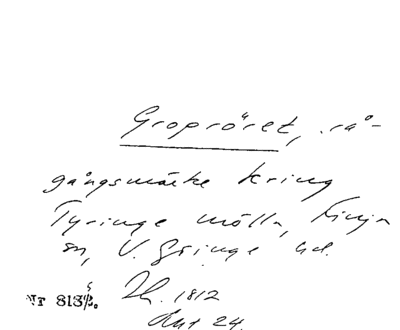 Groproret, rå-
gångsmärke kring
Tyringe mölla, Finja
sn, V. Göinge hd.
Nr 813
1812
Akt 24.